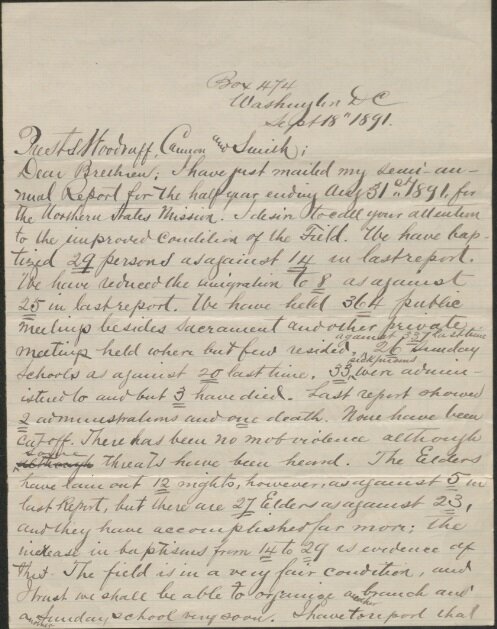 Box 474
Washington DC
Sept 18" 1891.
Prest's Woodruff, Cannon and Smith;
Dear Brethren; I have just mailed my semi-an-
nual Report for the half year ending Aug 31st 1891, for
the Northern States Mission. I desire to call your attention
to the improved condition of the Field. We have bap-
tized 29 persons as against 14 in last report.
We have reduced the emigration to 8 as against
25 in last report. We have held 364 public
meetings besides Sacrament and other private
against 337 last time
meetings held where but few resided. 26 Sunday
sick persons
schools as against 20 last time. 33 were admin-
istered to and but 3 have died. Last report showed
2 administrations and one death. None have been
cut off. There has been no mob violence although
some
although threats have been heard. The Elders
have lain out 12 nights, however, as against 5 in
last Report, but there are 27 Elders as against 23,
and they have accomplished far more; the
increase in baptisms from 14 to 29 is evidence of
that. The field is in a very fair condition, and
I trust we shall be able to organize another branch and
another Sunday school very soon. I have to report that